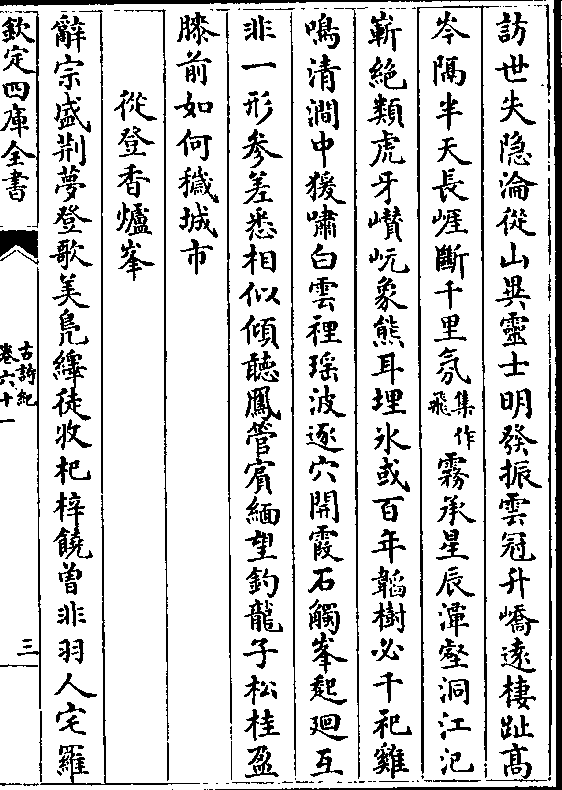 訪世失隐淪從山異靈士明發振雲冠升嶠逺棲趾髙
岑隔半天長崖斷千里氛集作飛霧承星辰潭壑洞江汜
嶄絶類虎牙巑岏象熊耳埋氷或百年韜樹必千祀雞
鳴清澗中猨嘯白雲裡瑶波逐穴開霞石觸峯起廻互
非一形參差悉相似傾聴鳳管賔緬望釣龍子松桂盈
膝前如何穢城市
從登香爐峯
辭宗盛荆夢登歌美鳬繹徒收杞梓饒曾非羽人宅羅
欽定四庫全書
古詩紀
卷六十一
三